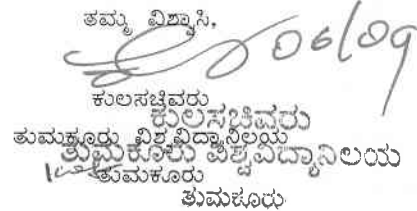 ತಮ್ಮ ವಿಶ್ವಾಸಿ,
06/09
ಕುಲಸಚಿವರು
ಕುಲಸಚಿವರು
ತುಮಕೂರು ವಿಶ್ವವಿದ್ಯಾನಿಲಯ
ತುಮಕೂರು ವಿಶ್ವವಿದ್ಯಾನಿಲಯ
ತುಮಕೂರು
ತುಮಕೂರು